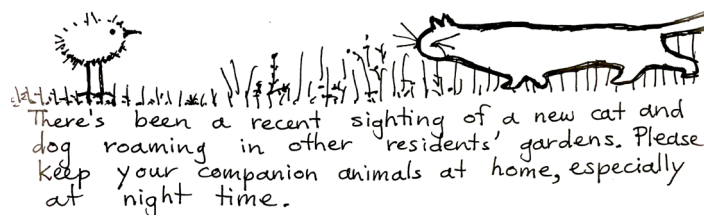 There's been a recent sighting of a new cat and
dog roaming in other residents' gardens. Please
keep your companion animals at home, especially
at night time.